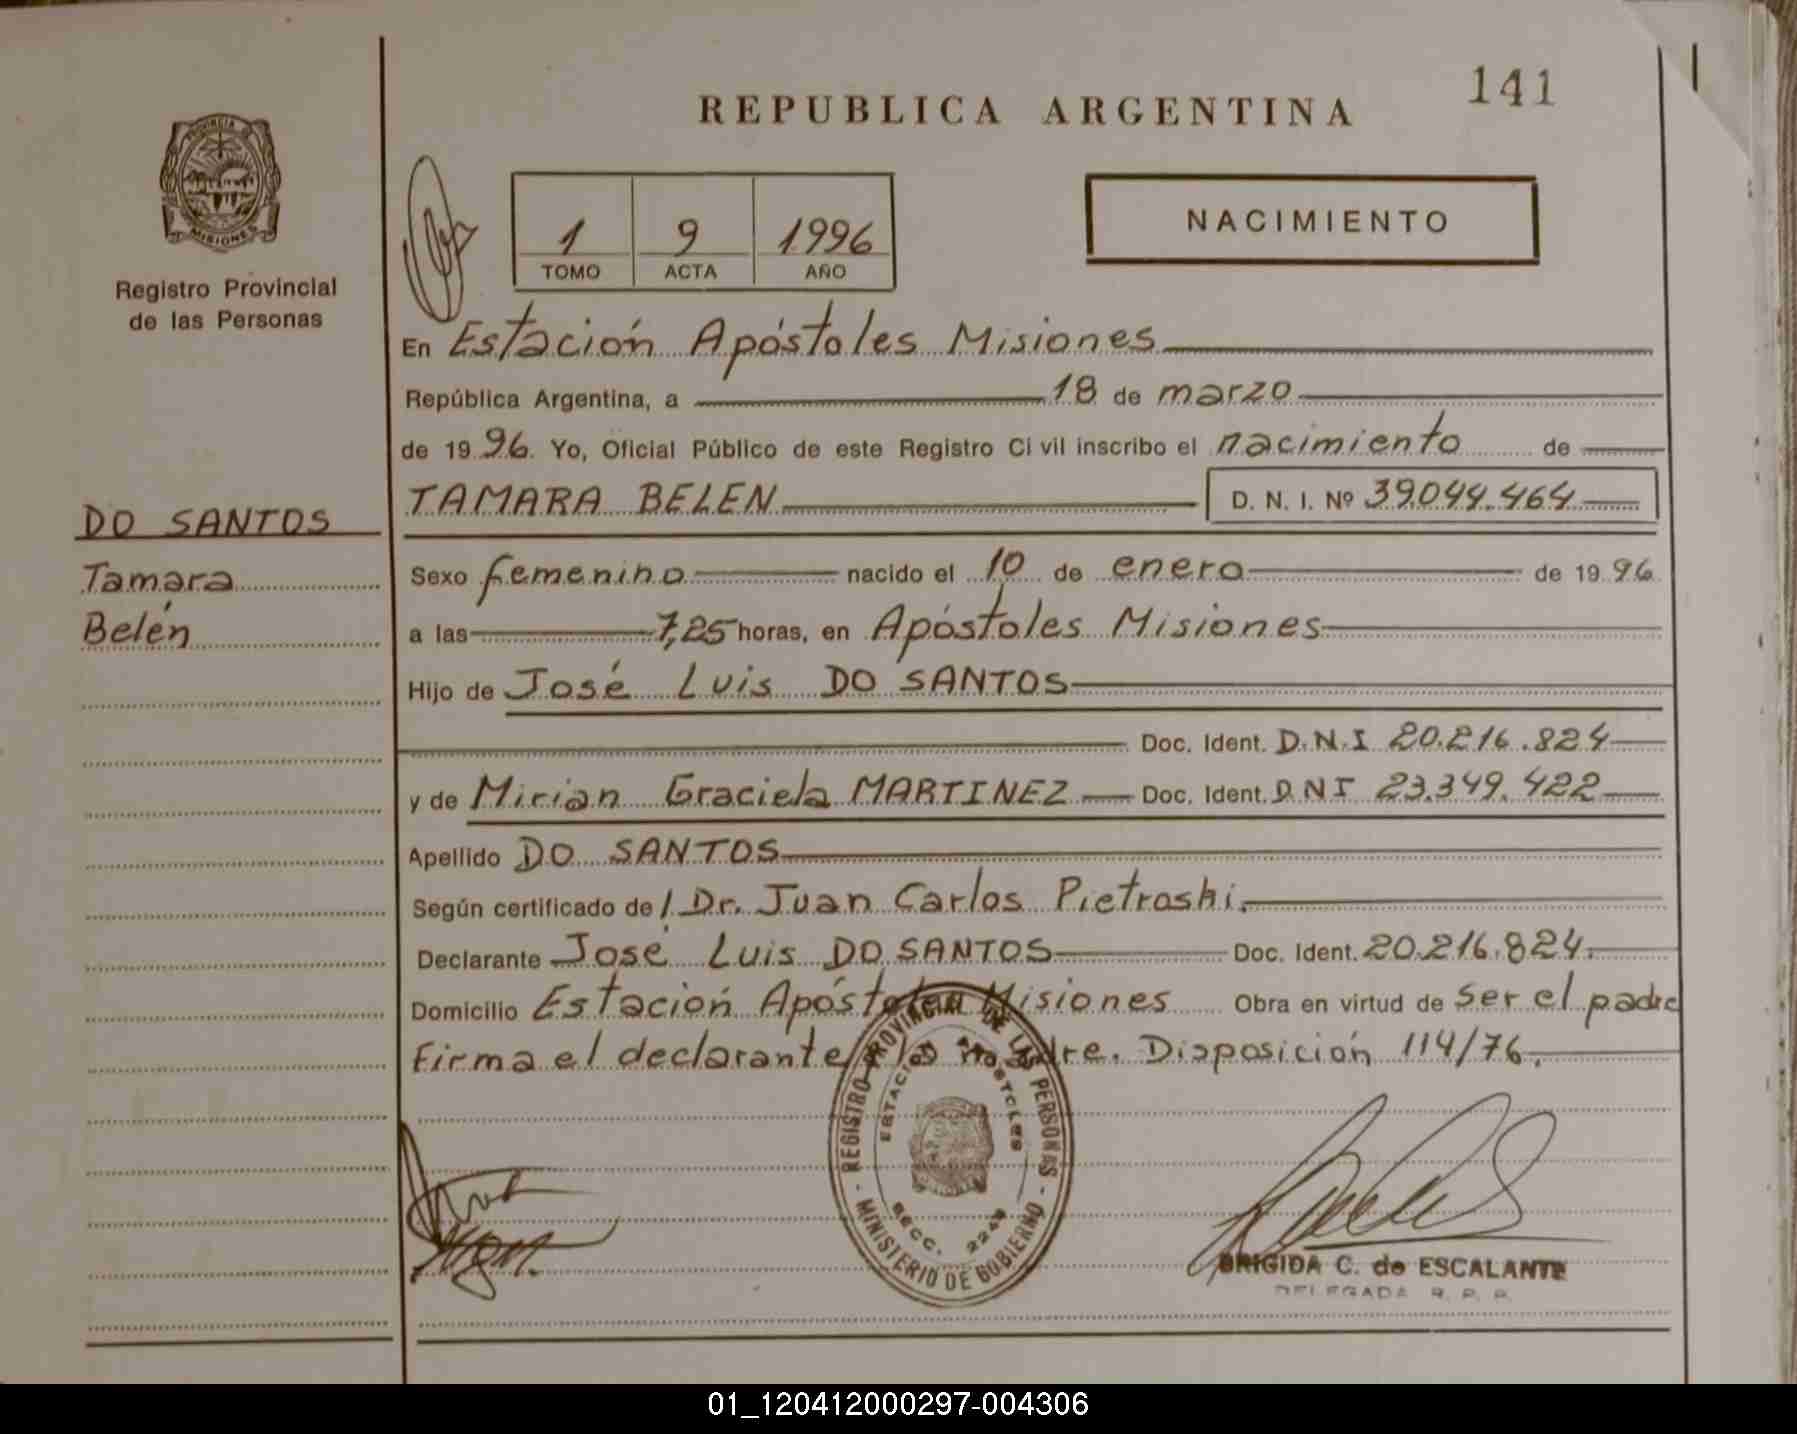 141
REPUBLICA ARGENTINA
PROVINCIA DE
MISIONES
Registro Provincial
de las Personas
1 9 1996
TOMO ACTA AÑO
NACIMIENTO
En Estación Apóstoles Misiones
República Argentina, a 18 de marzo
de 1996. Yo, Oficial Público de este Registro Ci vil inscribo el nacimiento de
TAMARA BELEN D. N. I. Nº 39.044.464
DO SANTOS
Tamara
Belén
Sexo femenino nacido el 10 de enero de 1996
a las 7,25 horas, en Apóstoles Misiones
Hijo de José Luis DO SANTOS
Doc. Ident. D.N.I 20.216.824
y de Mirian Graciela MARTINEZ Doc. Ident. DNI 23.349.422
Apellido DO SANTOS
Según certificado de / Dr. Juan Carlos Pietroski.
Declarante José Luis DO SANTOS Doc. Ident. 20.216.824.
Domicilio Estación Apóstoles Misiones Obra en virtud de ser el padre
Firma el declarante Disposición 114/76.
REGISTRO PROVINCIAL DE LAS PERSONAS - MINISTERIO DE GOBIERNO -
ESTACION APOSTOLES
SECC. 2249
BRIGIDA C. de ESCALANTE
DELEGADA R. P. P.
01_120412000297-004306